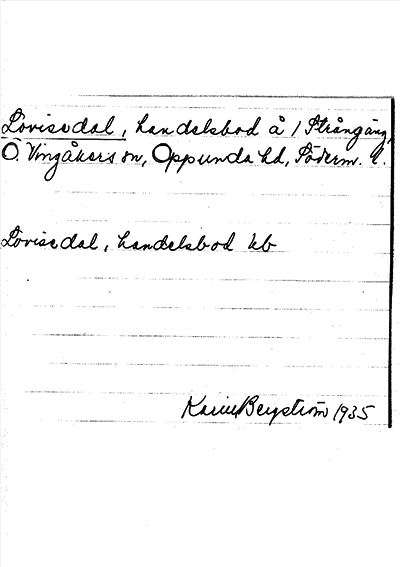 Lovisedal, handelsbod å 1 Strångäng,
Ö. Vingåkers sn, Oppunda hd, Söderm. l.
Lovisedal, handelsbod kb
Karin Bergström 1935